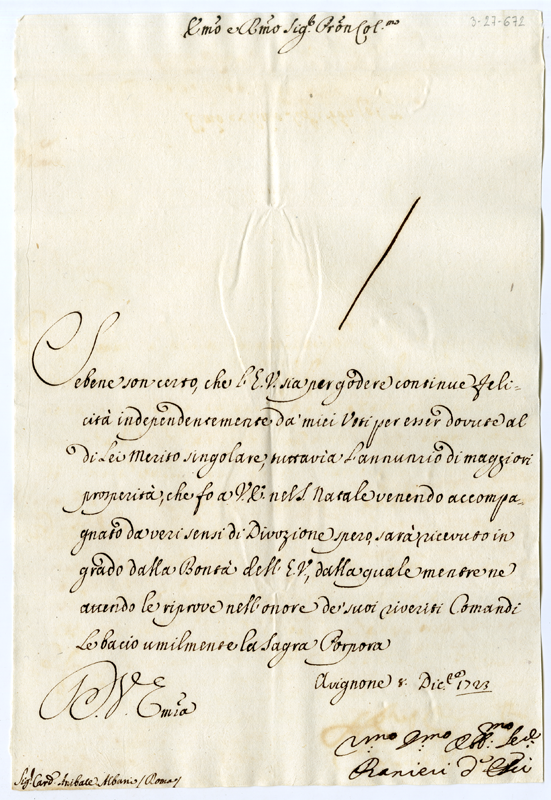 3-27-672
E͞mo e R͞mo Sig.r P͞ron Col.mo
Sebene son certo, che l'E.V. sia per godere continue feli=
cità independentemente da' miei Voti per esser dovute al
di Lei Merito singolare, tuttavia l'annunzio di maggiori
prosperità, che fo a V.E. nel S. Natale venendo accompa=
gnato da veri sensi di Divozione spero, sarà ricevuto in
grado dalla Bontà dell'E.V., dalla quale mentre ne
attendo le riprove nell'onore de suoi riveriti Comandi
Le bacio umilmente la Sagra Porpora
Avignone 8. Dic.
D. V. Emza
Ranieri d'Elci
Sig.r Card. Anibale Albani / Roma /